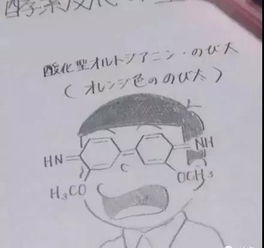 酸化型オルトジアニシジン・のび太
(オレンジ色ののび太)
HN
NH
C
H₃CO
OCH₃